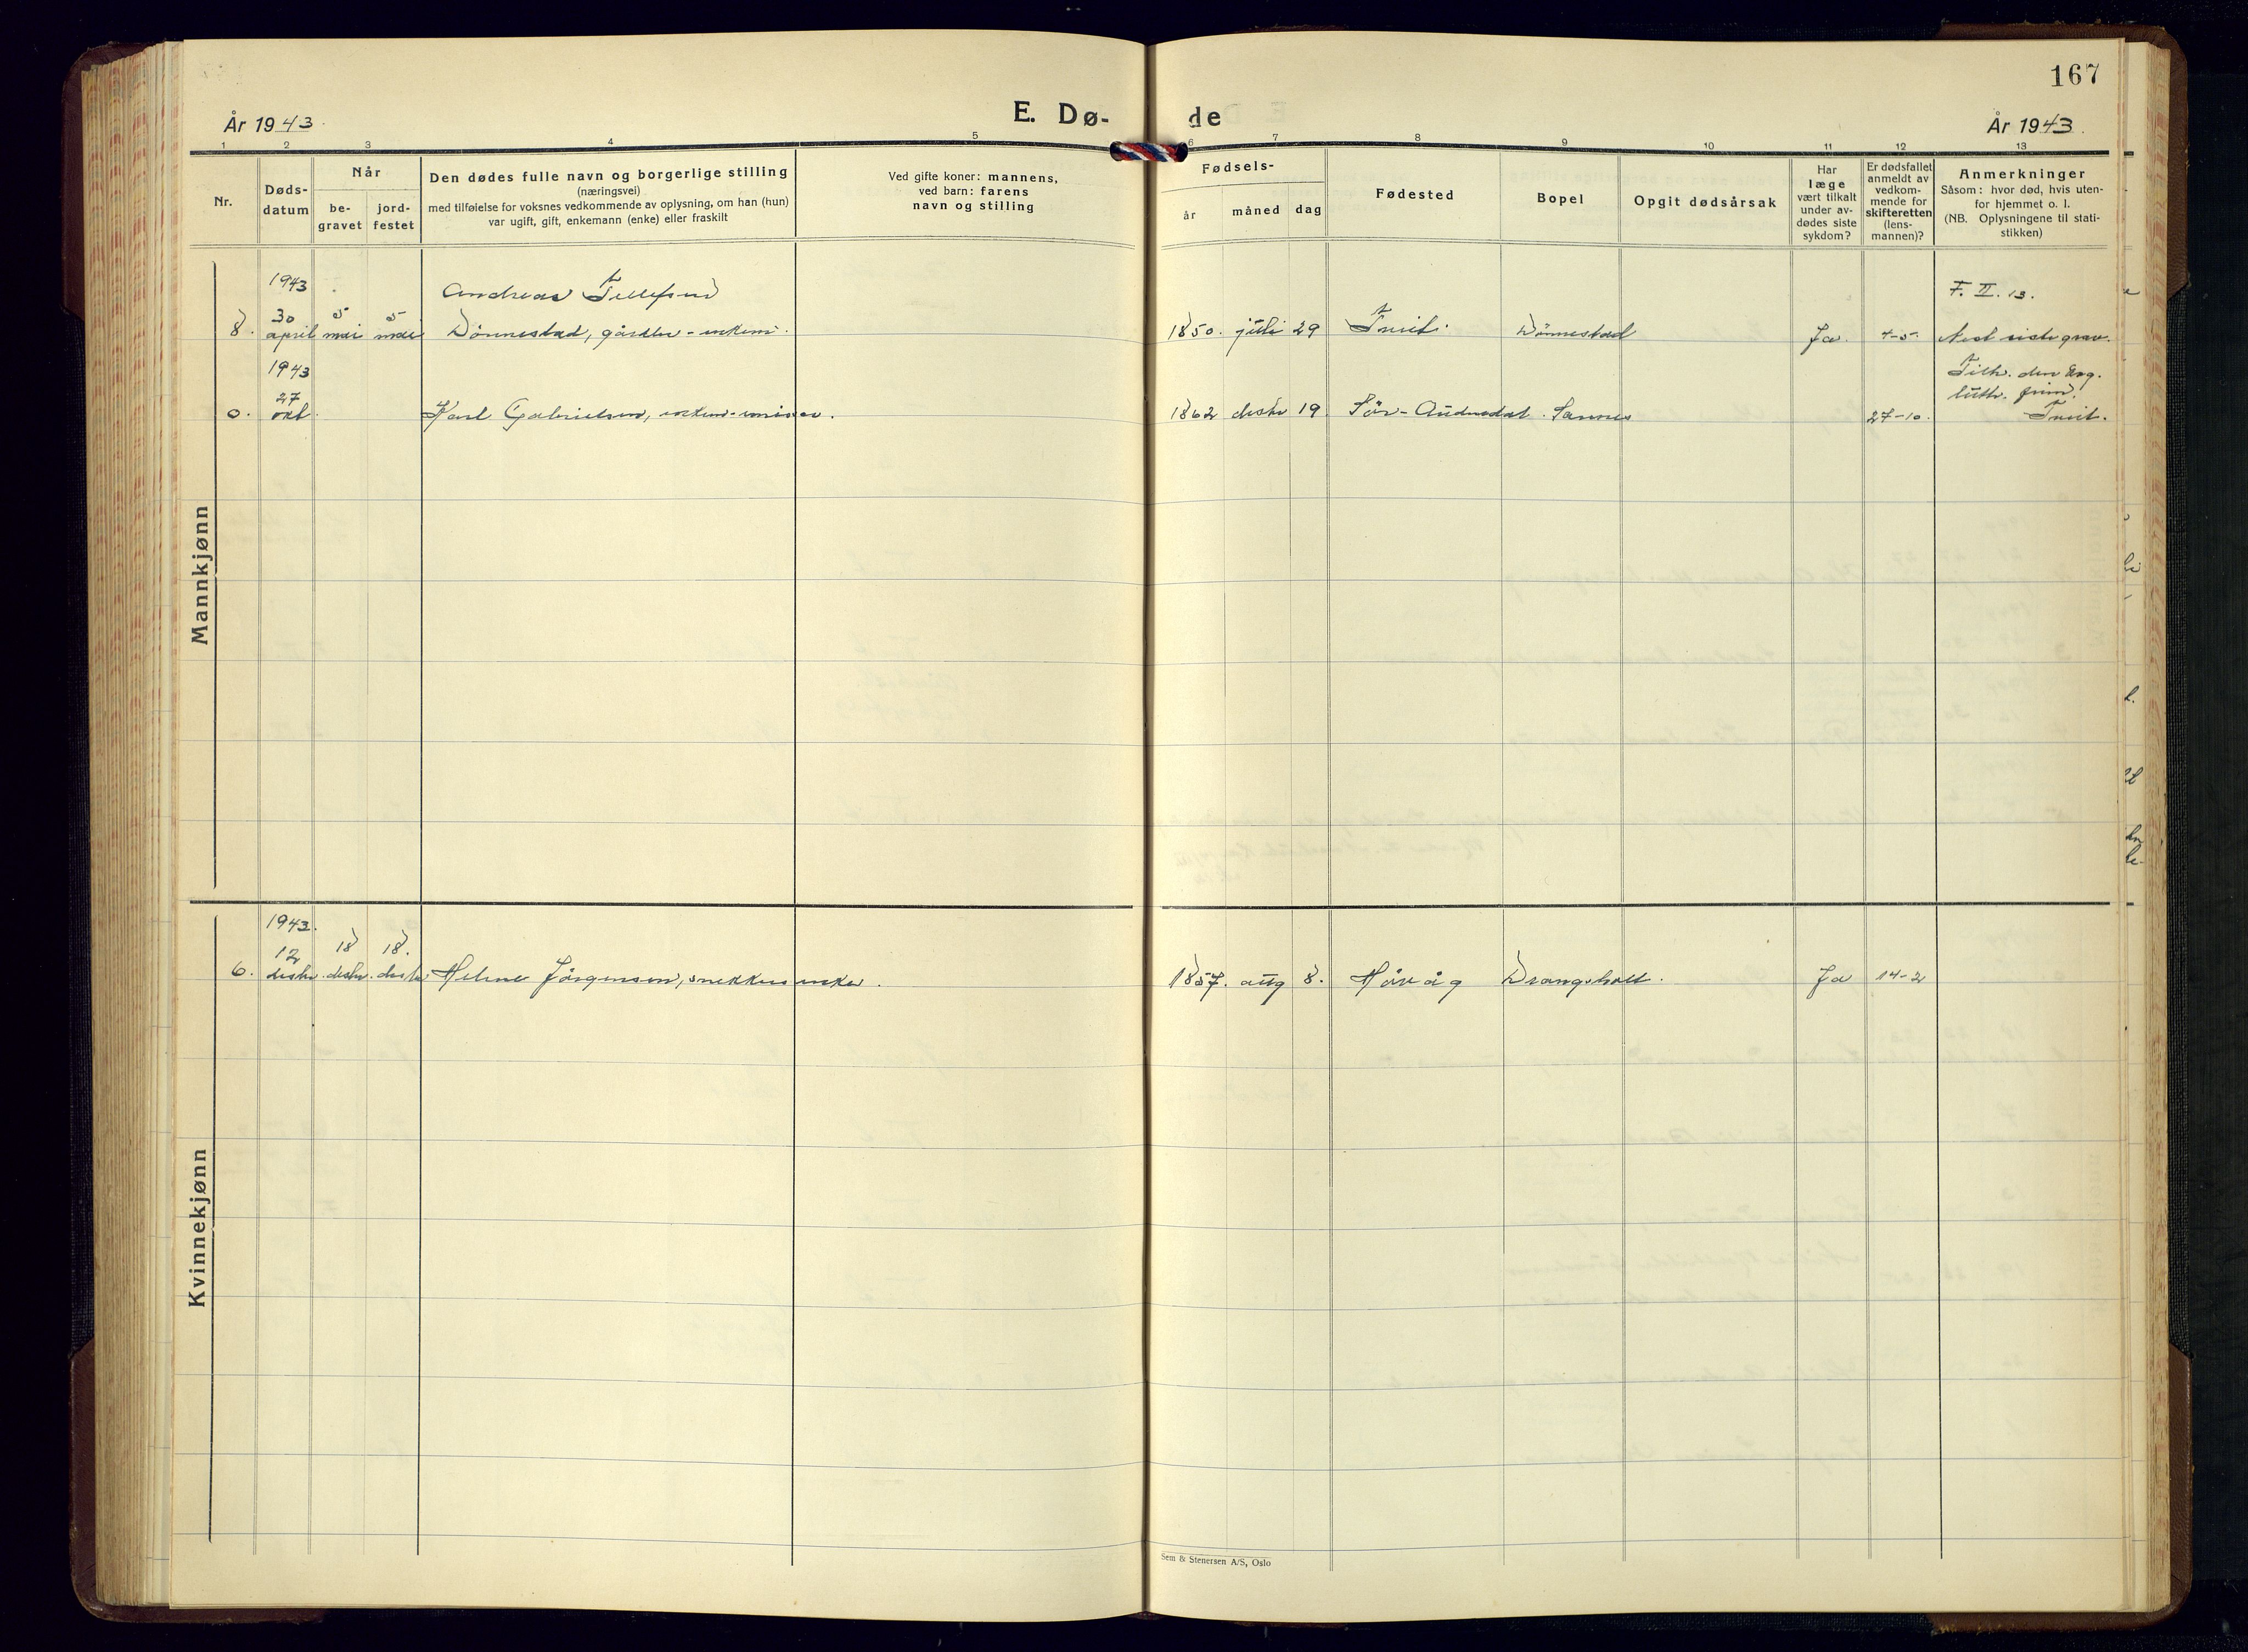 167
År 1943.
E. Dø-
de
År 1943.
1 2 3 4 5 6 7 8 9 10 11 12 13
Nr.
Døds-
datum
Når
be-
gravet
jord-
festet
Den dødes fulle navn og borgerlige stilling
(næringsvei)
med tilføielse for voksnes vedkommende av oplysning, om han (hun)
var ugift, gift, enkemann (enke) eller fraskilt
Ved gifte koner: mannens,
ved barn: farens
navn og stilling
Fødsels-
år
måned
dag
Fødested
Bopel
Opgit dødsårsak
Har
læge
vært tilkalt
under av-
dødes siste
sykdom?
Er dødsfallet
anmeldt av
vedkom-
mende for
skifteretten
(lens-
mannen)?
Anmerkninger
Såsom: hvor død, hvis uten-
for hjemmet o. l.
(NB. Oplysningene til stati-
stikken)
Mannkjønn
1943
Andreas Tellefsen
F. II. 13.
30 5 5
8. april mai mai Dønnestad, gårdbr - enkem. 1850. juli 29 Tveit. Dønnestad Ja. 4-5 Nest siste grav.
1943
Tilh. den Evg.
27
luth. frim.
0. okt Karl Gabrielsen, enkem - 1862 desbr 19 Sør-Audnedal. Sannes 27-10. Tveit.
Kvinnekjønn
1943.
12 18 18.
6. desbr. desbr. desbr. Helene Jørgensen, snekkers enke. 1857. aug 8. Høvåg Drangsholt. Ja 14-2
Sem & Stenersen A/S, Oslo